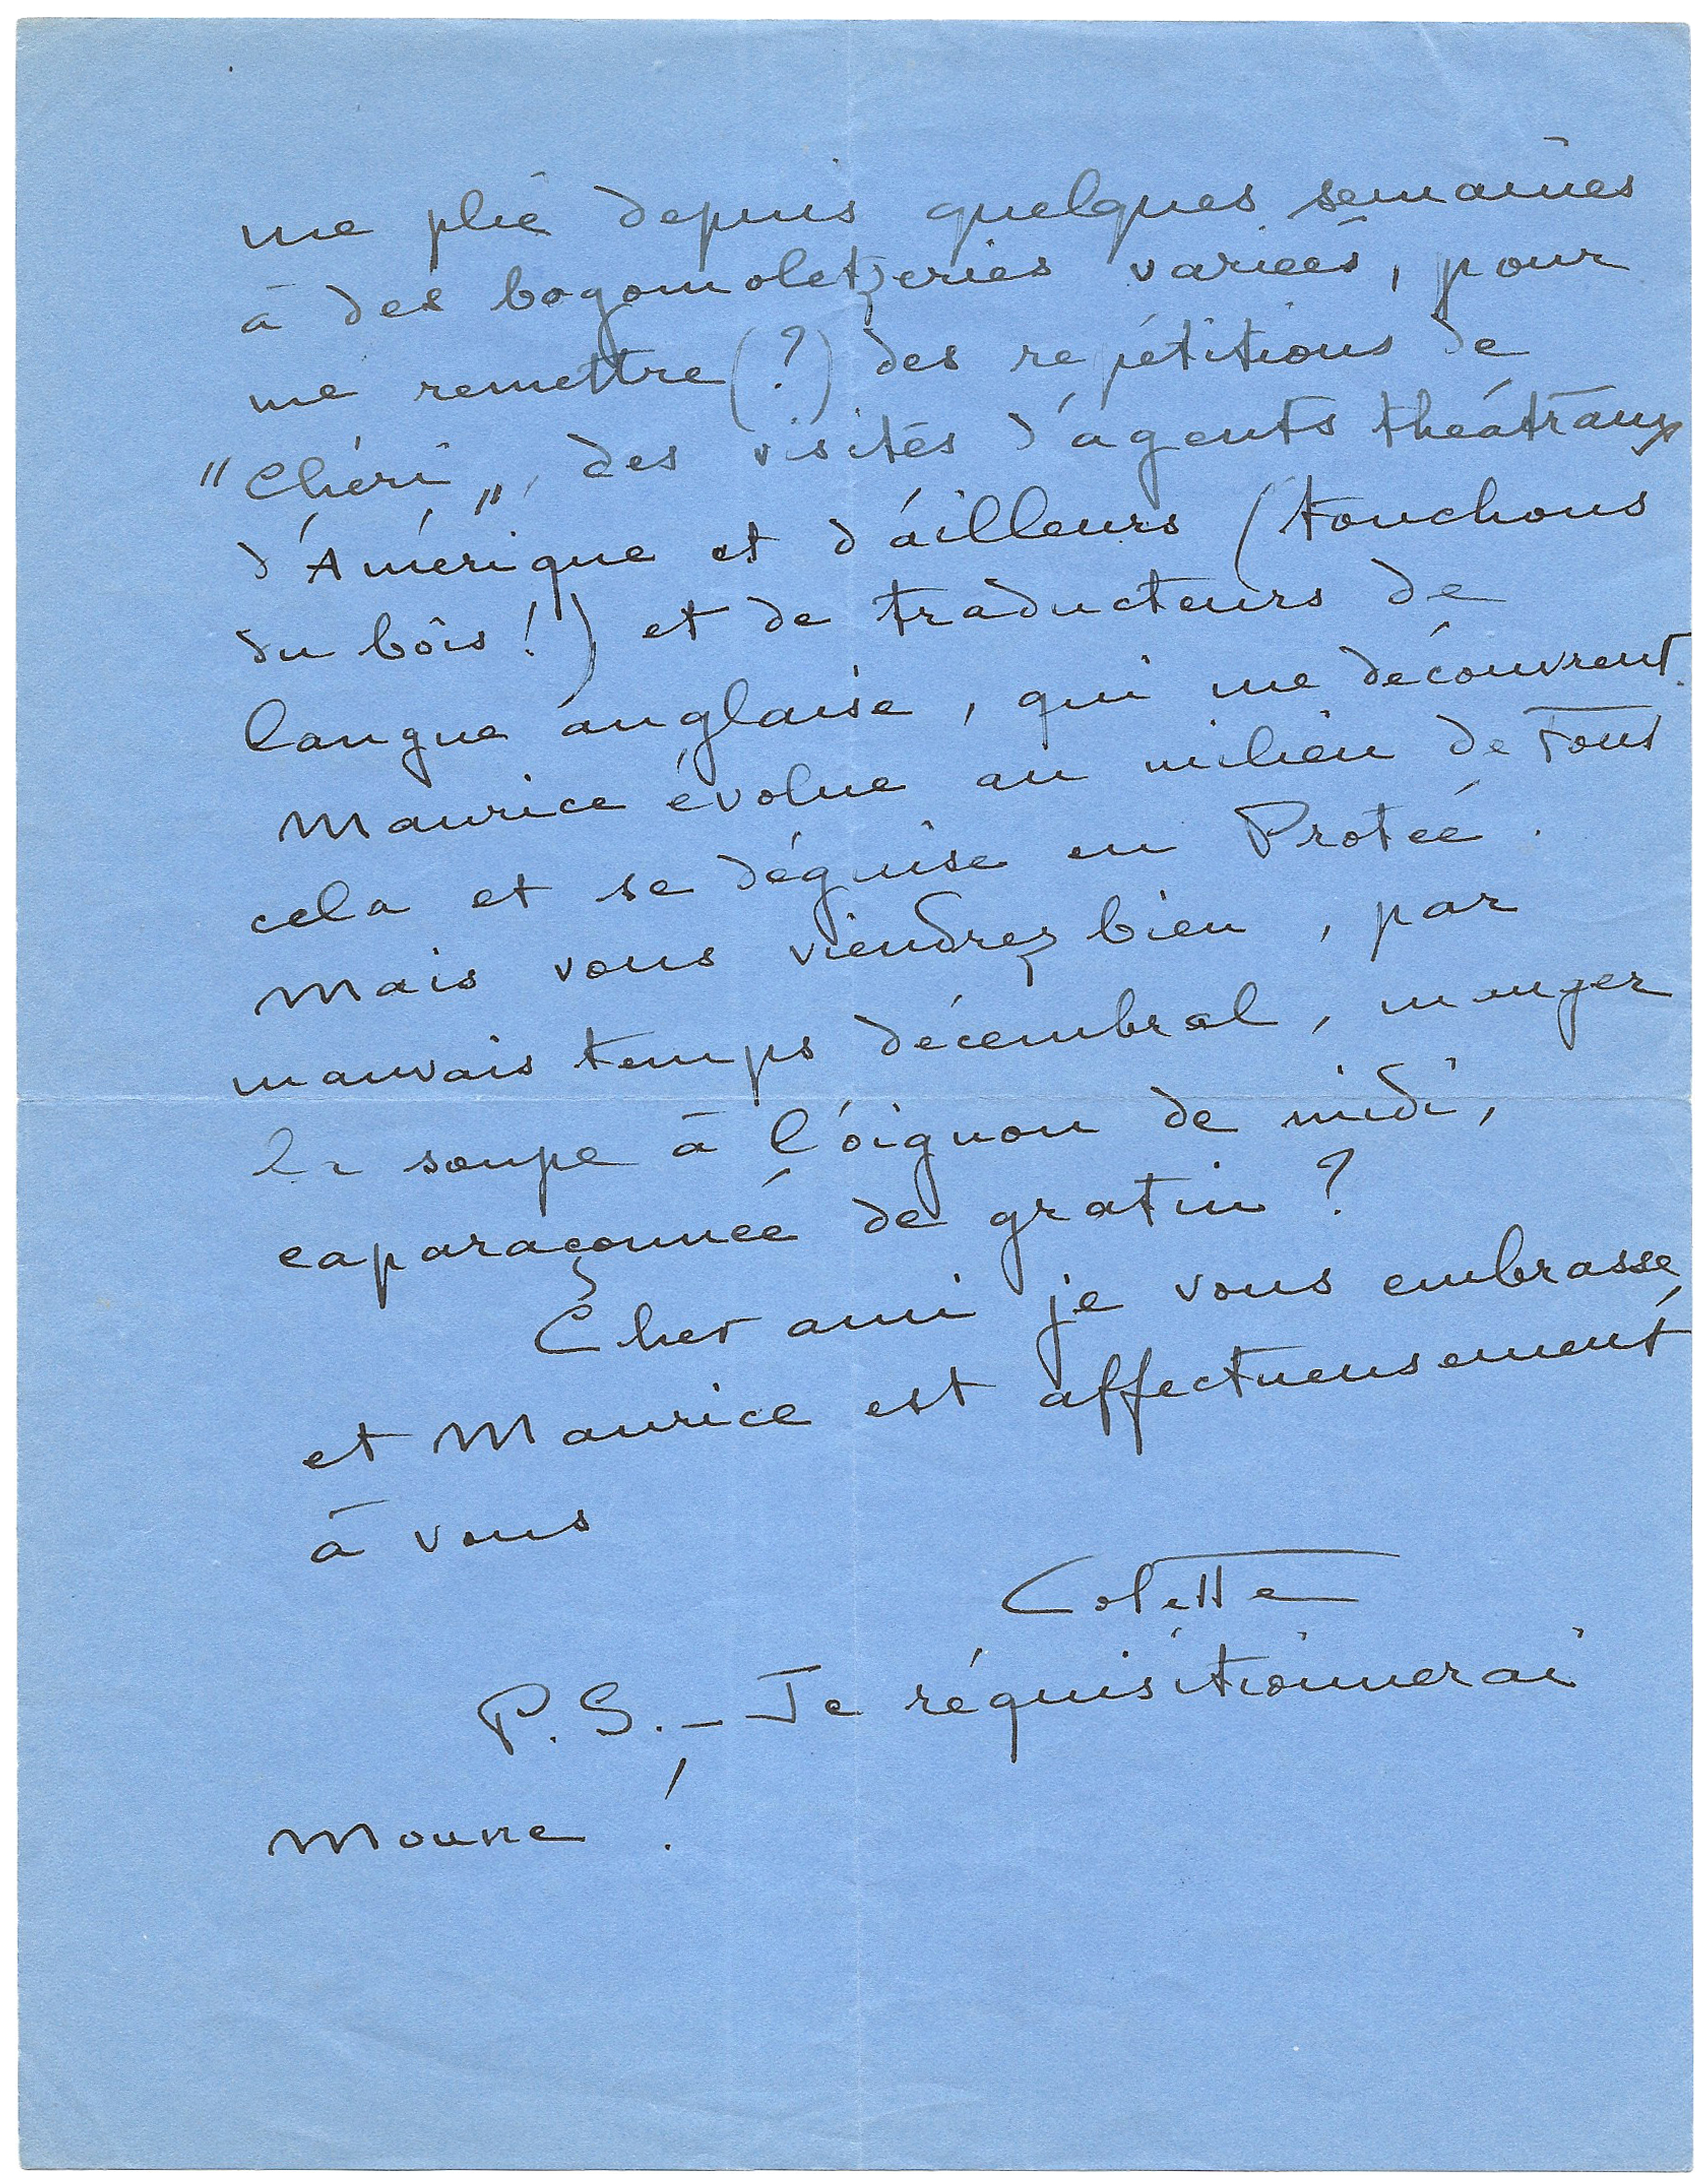 me plie depuis quelques semaines
à des bogomoletzeries variées, pour
me remettre (?) des répétitions de
"Chéri", des visites d'agents théâtraux
d'Amérique et d'ailleurs (touchons
du bois!) et de traducteurs de
langue anglaise, qui me découvrent.
Maurice évolue au milieu de tout
cela et se déguise en Protée.
Mais vous viendrez bien, par
mauvais temps décembral, manger
la soupe à l'oignon de midi,
caparaçonnée de gratin?
Cher ami je vous embrasse,
et Maurice est affectueusement
à vous
Colette
P.S. - Je réquisitionnerai
Moune!